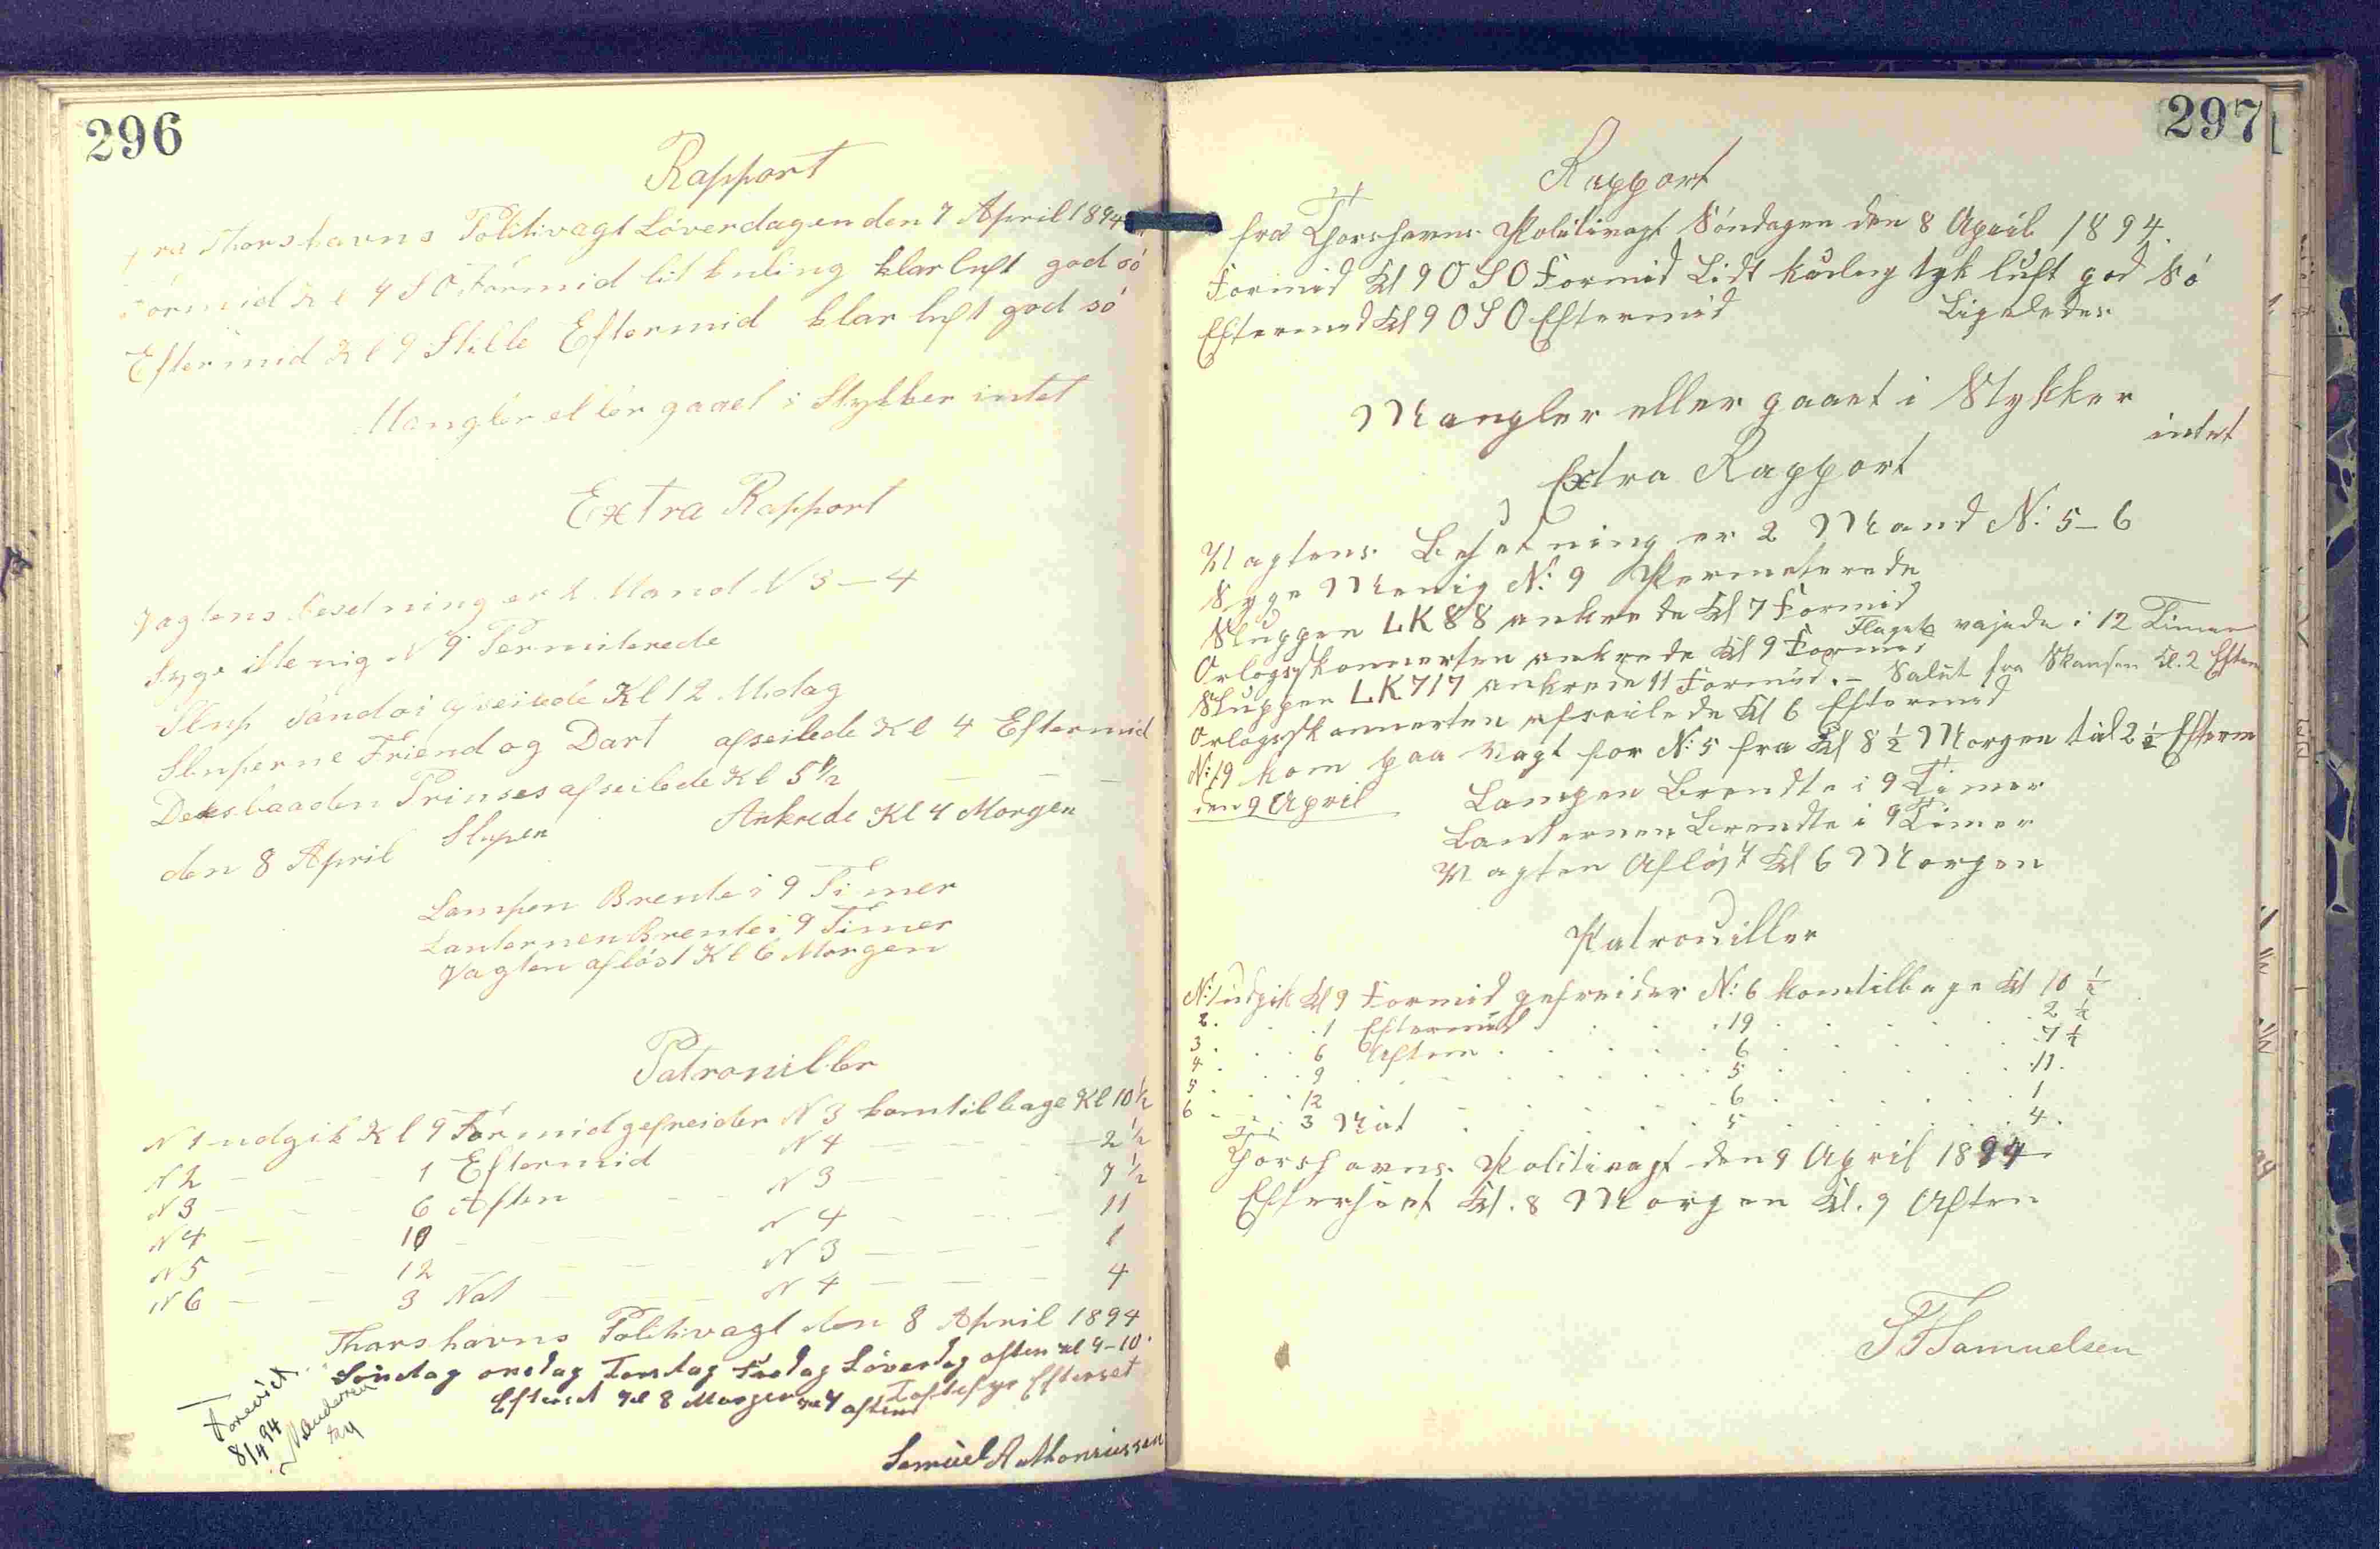 296
Rapport
fra Thorshavns Politivagt Löverdagen den 7 April 1894
Formid Kl 9 S O Formid lit kuling klar luft god só
Eftermid Kl 9 Stille Eftermid klar luft god só
Mangler eller gaaet i Stykker intet
Extra Rapport
Vagtens besetning er 2 Mand N 3 – 4
Syge Menig N 9 Permiterede
Slup Sandoi afseilede Kl 12 Midag
Sluperne Friend og Dart afseilede Kl 4 Eftermid
Deksbaaden Prinses afseilede Kl 5 1/2 — — —
den 8 April Slupen Ankrede Kl 4 Morgen
Lampen Brente i 9 Timer
Lanternen Brente i 9 Timer
Vagten aflöst Kl 6 Morgen
Patrouiller
N 1 udgik Kl 9 Formid gefreider N 3 kom tilbage Kl 10 1/2
N 2 — — 1 Eftermid N 4 — — 2 1/2
N 3 — — 6 Aften — — N 3 — — 7 1/2
N 4 — — 10 — — N 4 — — 11
N 5 — — 12 — — N 3 — — 1
N 6 — — 3 Nat — — N 4 — — 4
Thorshavns Politivagt den 8 April 1894
Söndag onsdag Torsdag Fredag Löverdag aften kl 9–10
Efterset Kl 8 Morgen aften Efterset
8/4 94
Samuel
297
Rapport
fra Thorshavns Politivagt Söndagen den 8 April 1894.
Formid Kl 9 O S O Formid Lidt kuling tyk luft god Só
Eftermid Kl 9 O S O Eftermid Ligeledes
Mangler eller gaaet i Stykker
intet
Extra Rapport
Vagtens Besetning er 2 Mand N: 5 – 6
Syge Menig N: 9 Permeterede
Sluppen LK 88 ankrede Kl 7 Formid
Orlogsskonnerten ankrede Kl 9 Formid Flaget vajede i 12 Timer
Sluppen LK 717 ankrede 11 Formid. – Salut fra Skansen Kl. 2 Efterm
Orlogsskonnerten afseilede Kl 6 Eftermid
N: 19 kom paa Vagt for N: 5 fra Kl 8 1/2 Morgen til 2 1/2 Efterm
den 9 April Lampen Brendte i 9 Timer
Lanternen Brendte i 9 Timer
Vagten Aflöst Kl 6 Morgen
Patrouiller
N: 1 udgik Kl 9 Formid gefreider N: 6 kom tilbage Kl 10 1/2
2 . . . 1 Eftermid . . . 19 . . . 2 1/2
3 . . . 6 Aften . . . 6 . . . 7 1/2
4 . . . 9 . . . 5 . . . 11.
5 . . . 12 . . . 6 . . . 1
6 . . . 3 Nat . . . 5 . . . 4.
Thorshavns Politivagt den 9 April 1894
Efterseet Kl. 8 Morgen Kl. 9 Aften
Samuelsen